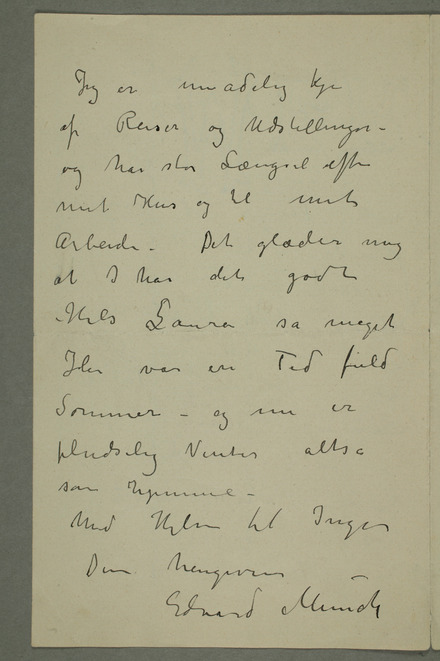 Jeg er umadelig kje
af Reiser og Udstillinger –
og har stor Længsel efter
mit Hus og til mit
Arbeide – Det glæder mig
at I har det godt
Hils Laura så meget
Her var en Tid fuld
Sommer – og nu er
pludselig Vinter altså
som hjemme –
Med Hilsen til Inger
Din hengivne
Edvard Munch